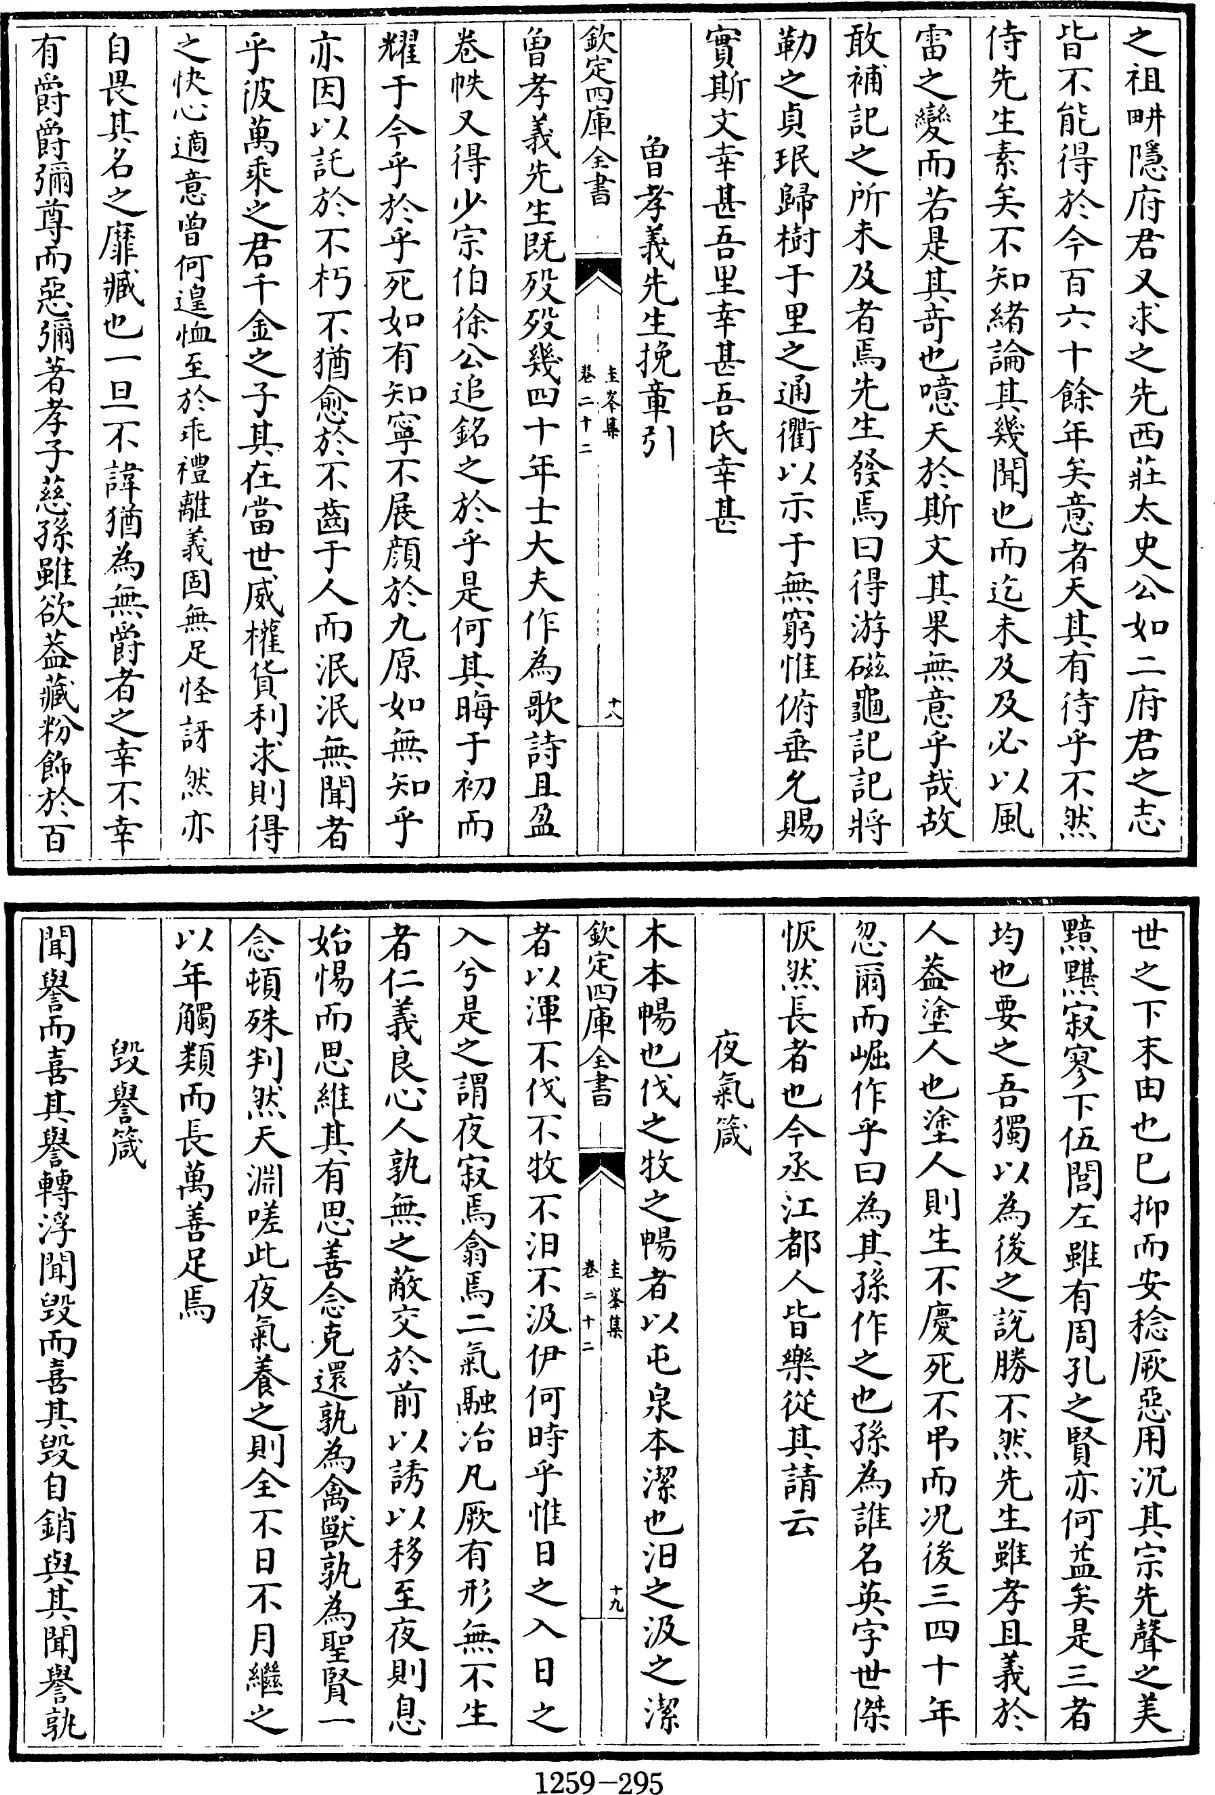 之祖畊隱府君又求之先西莊太史公如二府君之志
皆不能得於今百六十餘年矣意者天其有待乎不然
侍先生素矣不知緒論其幾聞也而迄未及及必以風
雷之變而若是其竒也噫天於斯文其果無意乎哉故
敢補記之所未及者焉先生發焉曰得游磁龜記記將
勒之貞珉歸樹于里之通衢以示于無窮惟俯垂允賜
實斯文幸甚吾里幸甚吾氏幸甚
曾孝義先生挽章引
欽定四庫全書
圭峯集
卷二十二
十八
曾孝義先生既歿歿幾四十年士大夫作為歌詩且盈
卷帙又得少宗伯徐公追銘之於乎是何其晦于初而
耀于今乎於乎死如有知寧不展顔於九原如無知乎
亦因以託於不朽不猶愈於不齒于人而泯泯無聞者
乎彼萬乘之君千金之子其在當世威權貨利求則得
之快心適意曾何遑恤至於乖禮離義固無足怪訝然亦
自畏其名之靡臧也一旦不諱猶為無爵者之幸不幸
有爵爵彌尊而惡彌著孝子慈孫雖欲蓋藏粉飾於百
世之下末由也已抑而安稔厥惡用沉其宗先聲之美
黯黮寂寥下伍閭左雖有周孔之賢亦何益矣是三者
均也要之吾獨以為後之說勝不然先生雖孝且義於
人蓋塗人也塗人則生不慶死不弔而况後三四十年
忽爾而崛作乎曰為其孫作之也孫為誰名英字世傑
恢然長者也今丞江都人皆樂從其請云
夜氣箴
木本暢也伐之牧之暢者以屯泉本潔也汨之汲之潔
欽定四庫全書
圭峯集
卷二十二
十九
者以渾不伐不牧不汨不汲伊何時乎惟日之入日之
入兮是之謂夜寂焉翕焉二氣融冶凡厥有形無不生
者仁義良心人孰無之蔽交於前以誘以移至夜則息
始惕而思維其有思善念克還孰為禽獸孰為聖賢一
念頓殊判然天淵嗟此夜氣養之則全不日不月繼之
以年觸類而長萬善足焉
毁譽箴
聞譽而喜其譽轉浮聞毁而喜其毁自銷與其聞譽孰
1259-295